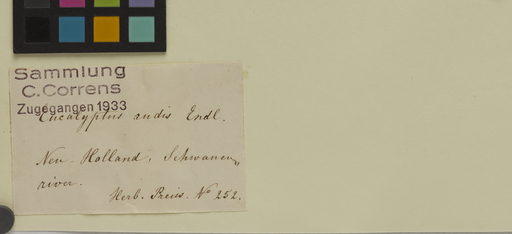 Sammlung
C. Correns
Zugegangen 1933
Eucalyptus rudis Endl.
Neu-Holland, Schwanen„
river.
Herb. Preiss. No 252.